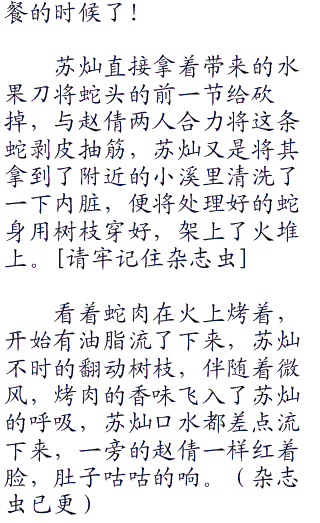 餐的时候了！
苏灿直接拿着带来的水
果刀将蛇头的前一节给砍
掉，与赵倩两人合力将这条
蛇剥皮抽筋，苏灿又是将其
拿到了附近的小溪里清洗了
一下内脏，便将处理好的蛇
身用树枝穿好，架上了火堆
上。[请牢记住杂志虫]
看着蛇肉在火上烤着，
开始有油脂流了下来，苏灿
不时的翻动树枝，伴随着微
风，烤肉的香味飞入了苏灿
的呼吸，苏灿口水都差点流
下来，一旁的赵倩一样红着
脸，肚子咕咕的响。（杂志
虫已更）